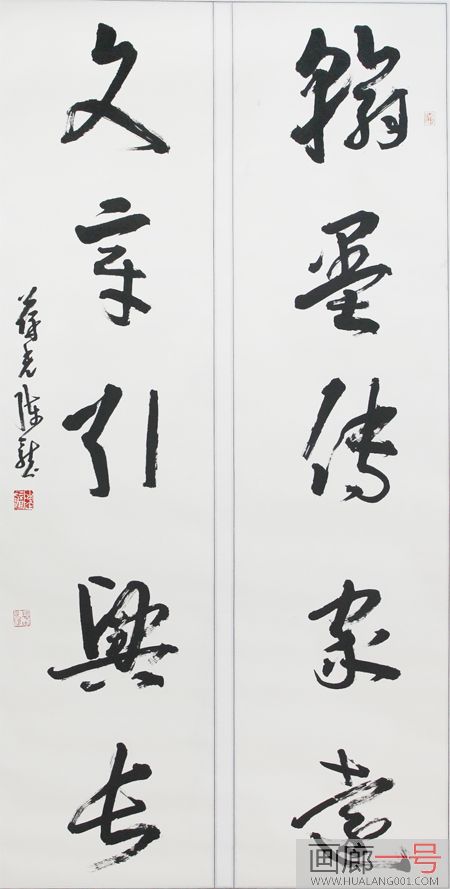 翰墨傳家
文章引興长
画廊一号
WWW.HUALANG001.COM